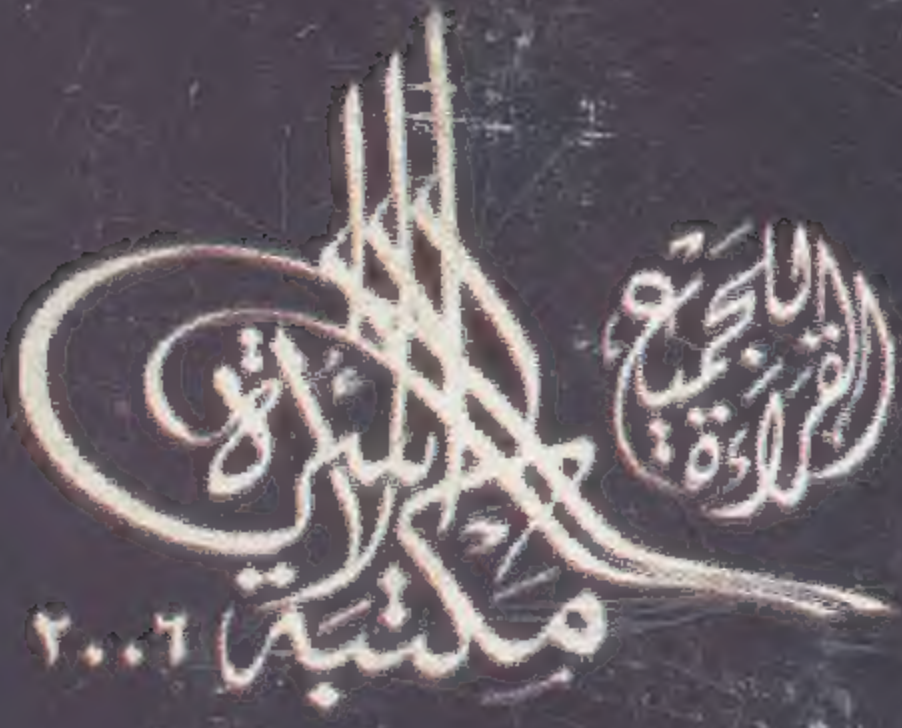 القراءة للجميع
مكتبة الأسرة
٢٠٠٦